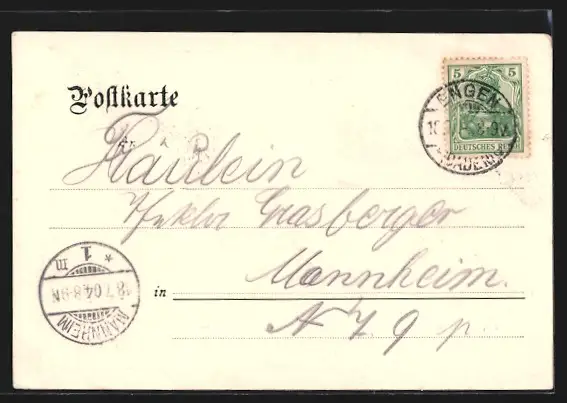 Postkarte
5 5
DEUTSCHES REICH
ENGEN
(BADEN)
An
Fräulein
Grasberger
in Mannheim.
N 7. 9 p.
MANNHEIM
18.7.04.8-9N
* 1 m